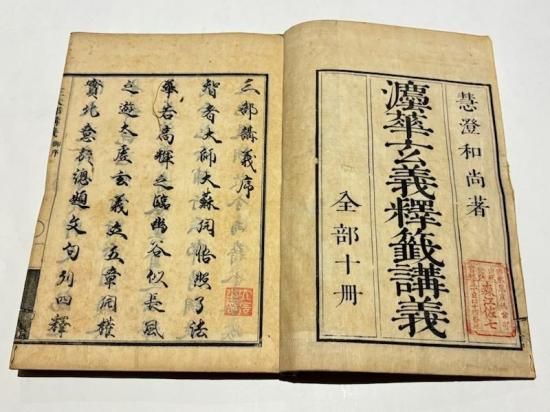 慧澄和尚著
灋華玄義釋籤講義
全部十冊
三部講義序
智者大師大蘇洞悟照了法
華若高輝之臨幽谷似長風
之遊太虛玄義立五章洞權
實此意於總題文句列四釋
佐七